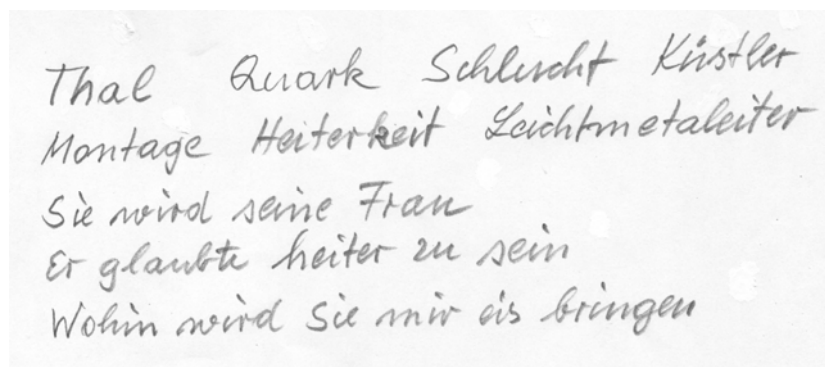 Thal Quark Schlucht Küstler
Montage Heiterkeit Leichtmetaleiter
Sie wird seine Frau
Er glaubte heiter zu sein
Wohin wird Sie mir eis bringen